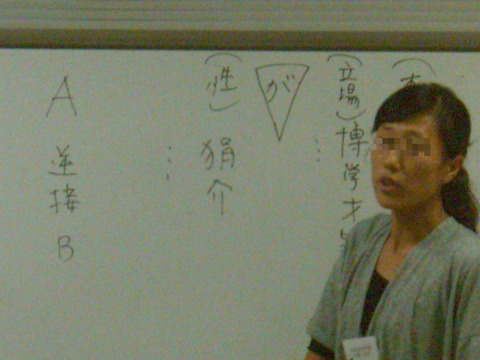 （立場）博学才
が
（性）狷介
A 逆接 B